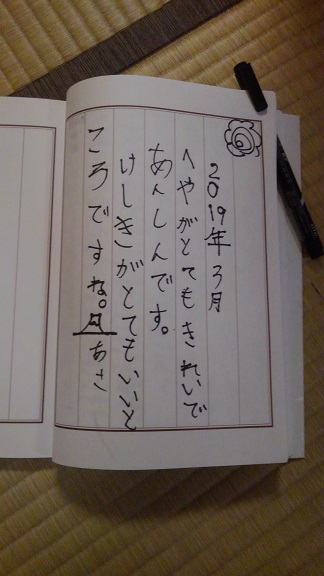 2019年3月
へやがとてもきれいで
あんしんです。
けしきがとてもいいと
ころですね。
あさ